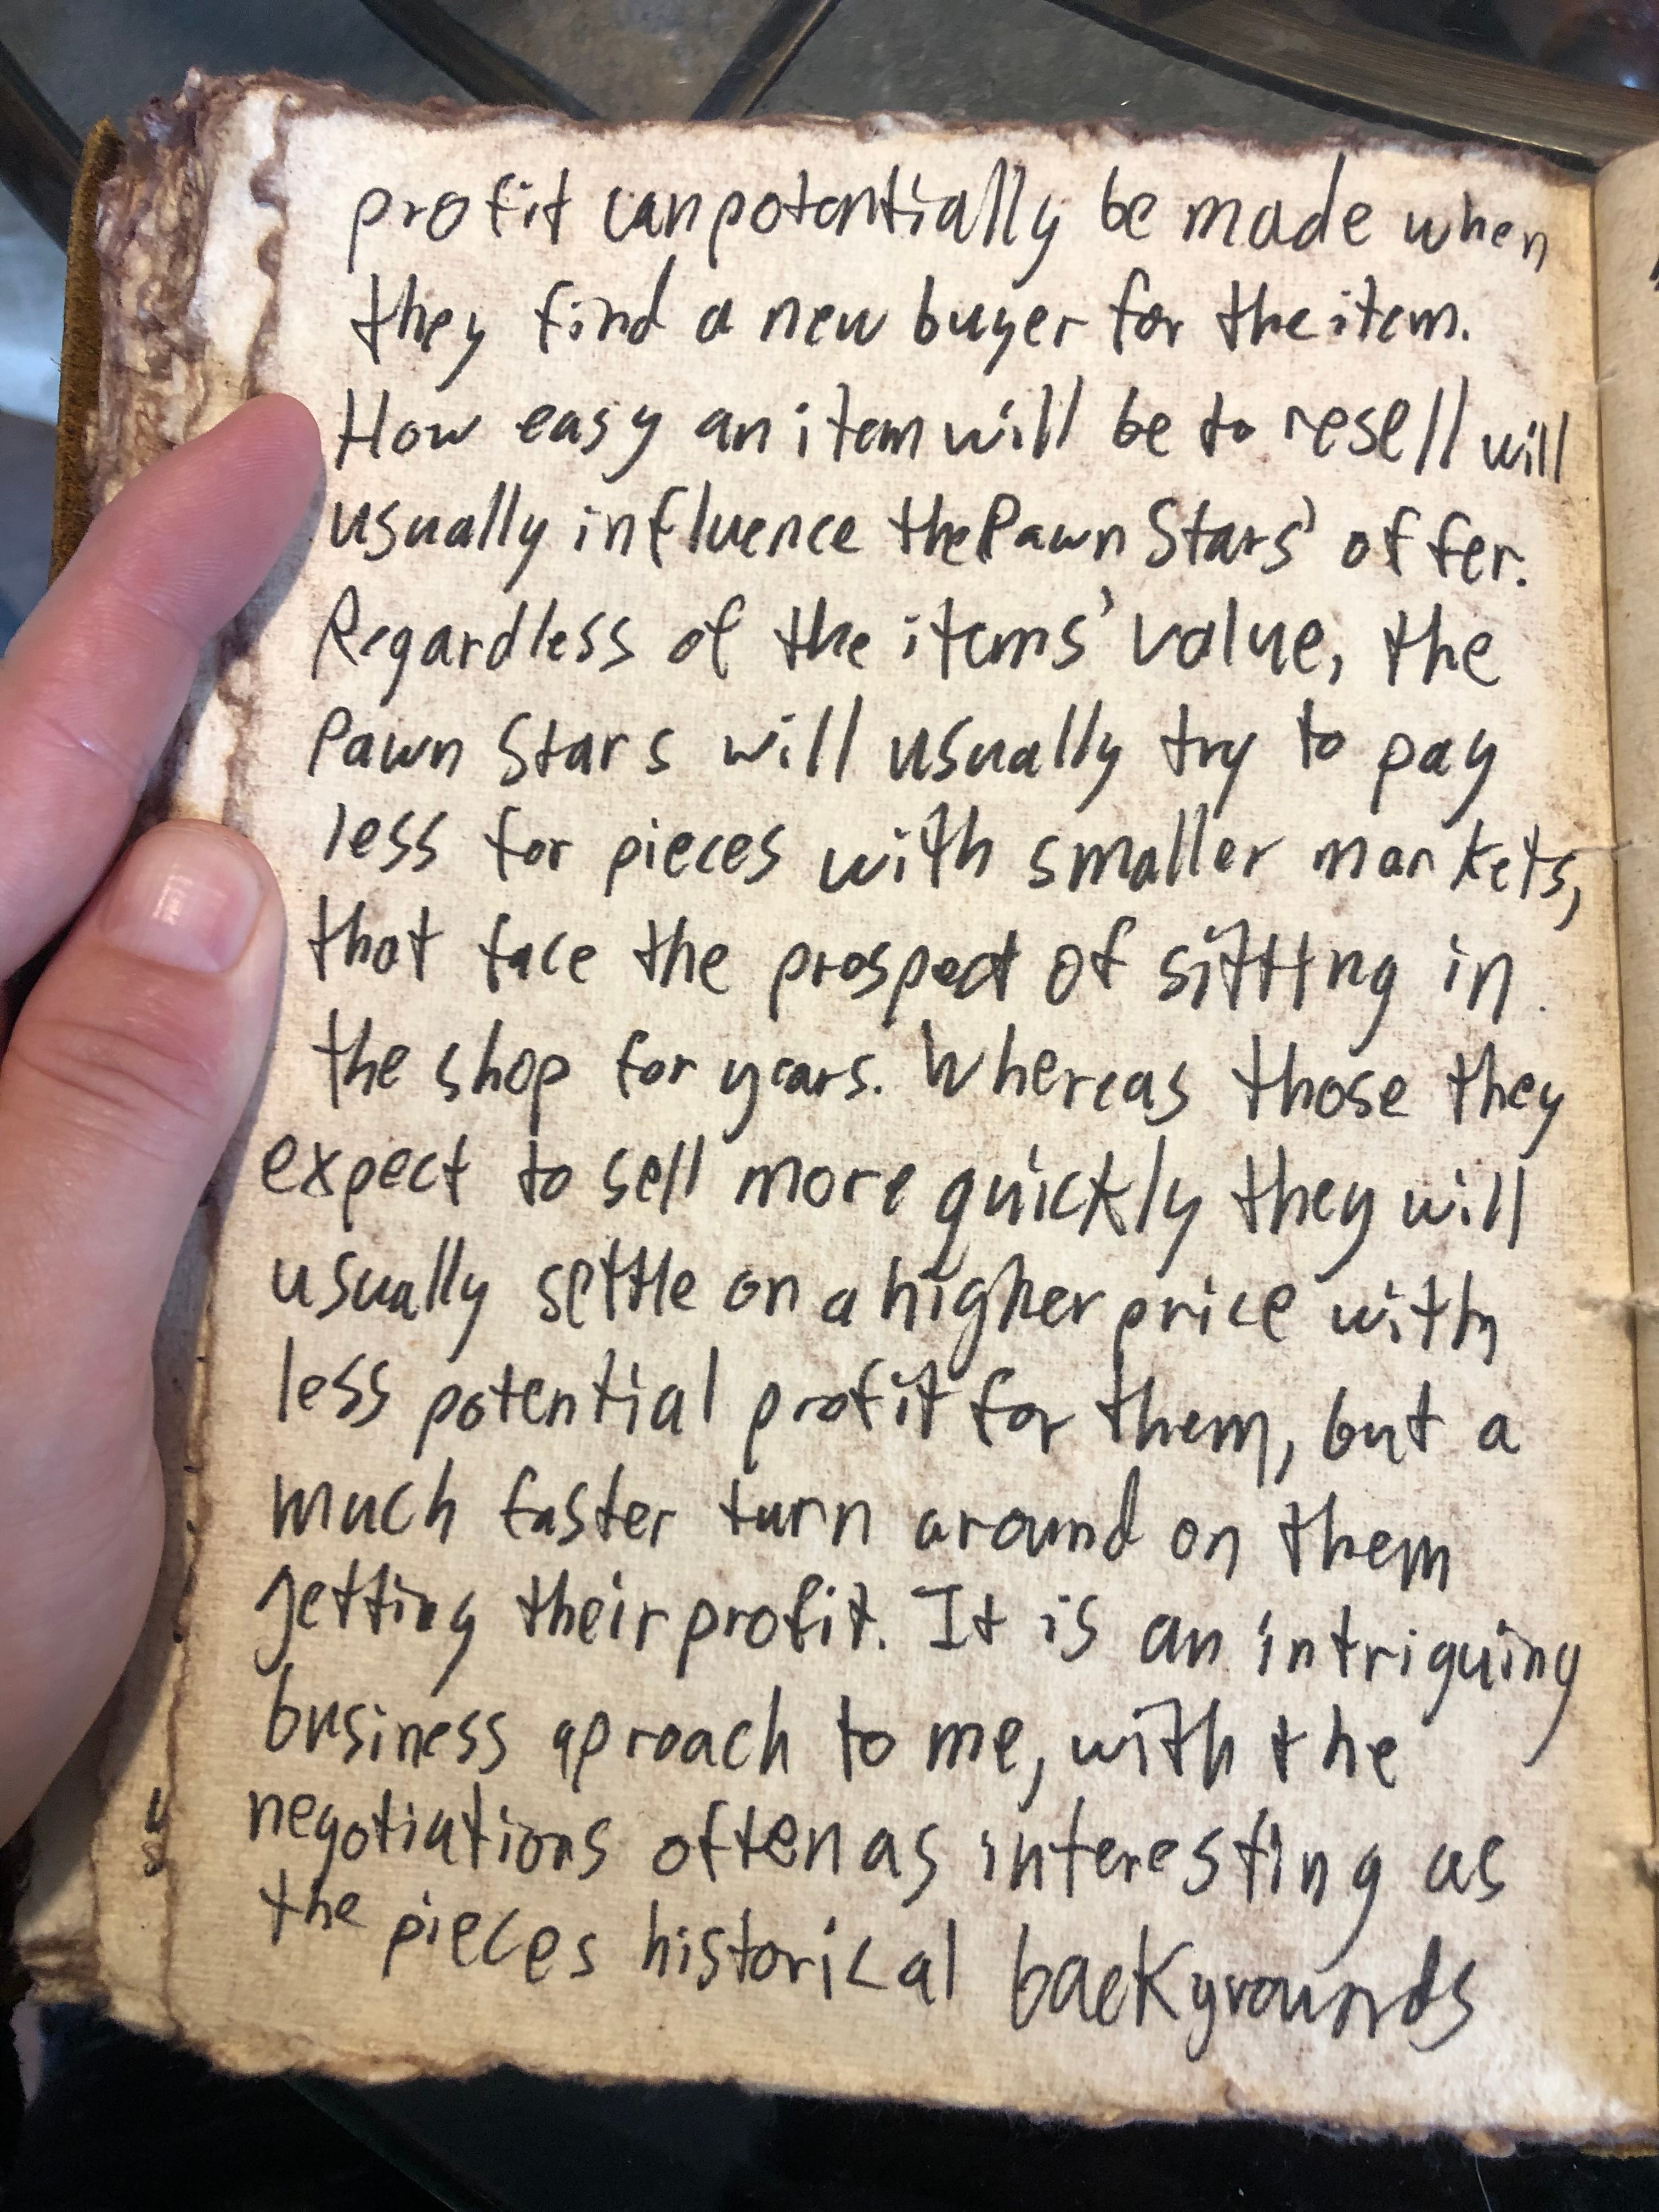 profit can potentially be made when
they find a new buyer for the item.
How easy an item will be to resell will
usually influence the Pawn Stars' offer.
Regardless of the items' value, the
Pawn Stars will usually try to pay
less for pieces with smaller markets,
that face the prospect of sitting in
the shop for years. Whereas those they
expect to sell more quickly they will
usually settle on a higher price with
less potential profit for them, but a
much faster turn around on them
getting their profit. It is an intriguing
business aproach to me, with the
negotiations often as interesting as
the pieces historical backgrounds
y
s